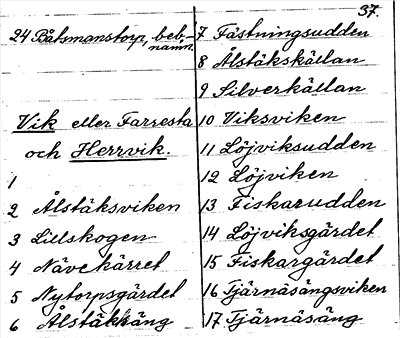 37.
24 Båtsmanstorp, beb.-
namn.
Vik eller Farresta
och Herrvik.
1
2 Ålstäksviken
3 Lillskogen
4 Nävekärret
5 Nytorpsgärdet
6 Ålstäkkäng
7 Fästningsudden
8 Ålstäkskällan
9 Silverkällan
10 Viksviken
11 Löjviksudden
12 Löjviken
13 Fiskarudden
14 Löjviksgärdet
15 Fiskargärdet
16 Tjärnäsängsviken
17 Tjärnäsäng